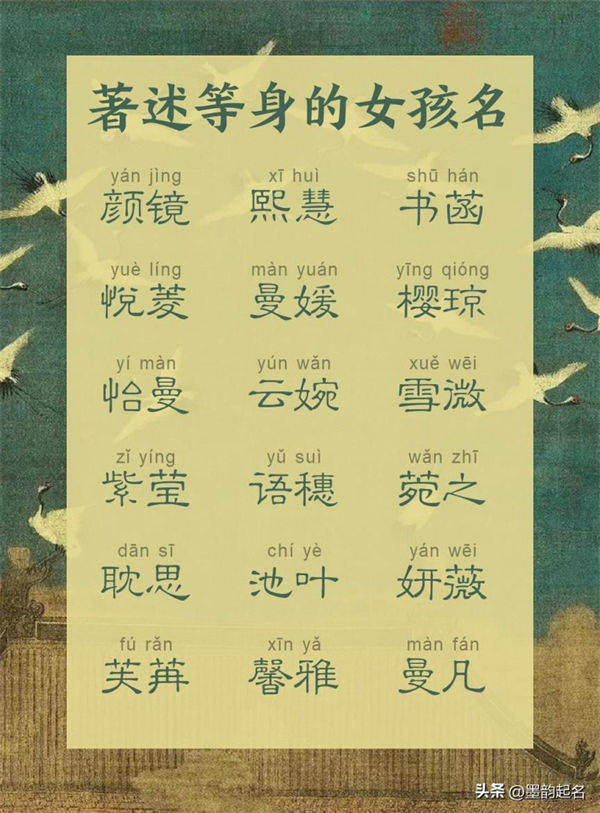 著述等身的女孩名
yán jìng xī huì shū hán
颜镜 熙慧 书菡
yuè líng màn yuán yīng qióng
悦菱 曼媛 樱琼
yí màn yún wǎn xuě wēi
怡曼 云婉 雪微
zǐ yíng yǔ suì wǎn zhī
紫莹 语穗 菀之
dān sī chí yè yán wēi
耽思 池叶 妍薇
fú rǎn xīn yǎ màn fán
芙苒 馨雅 曼凡
头条 @墨韵起名